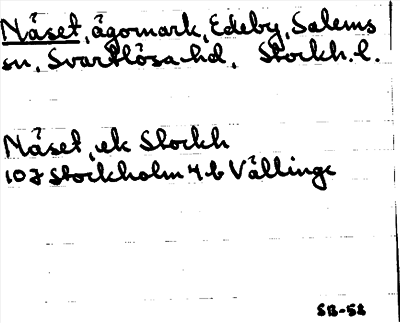 Näset, ägomark, Edeby, Salems
sn, Svartlösa hd, Stockh. l.
Näset, ek Stockh
10 I Stockholm 4 b Vällinge
SB-58